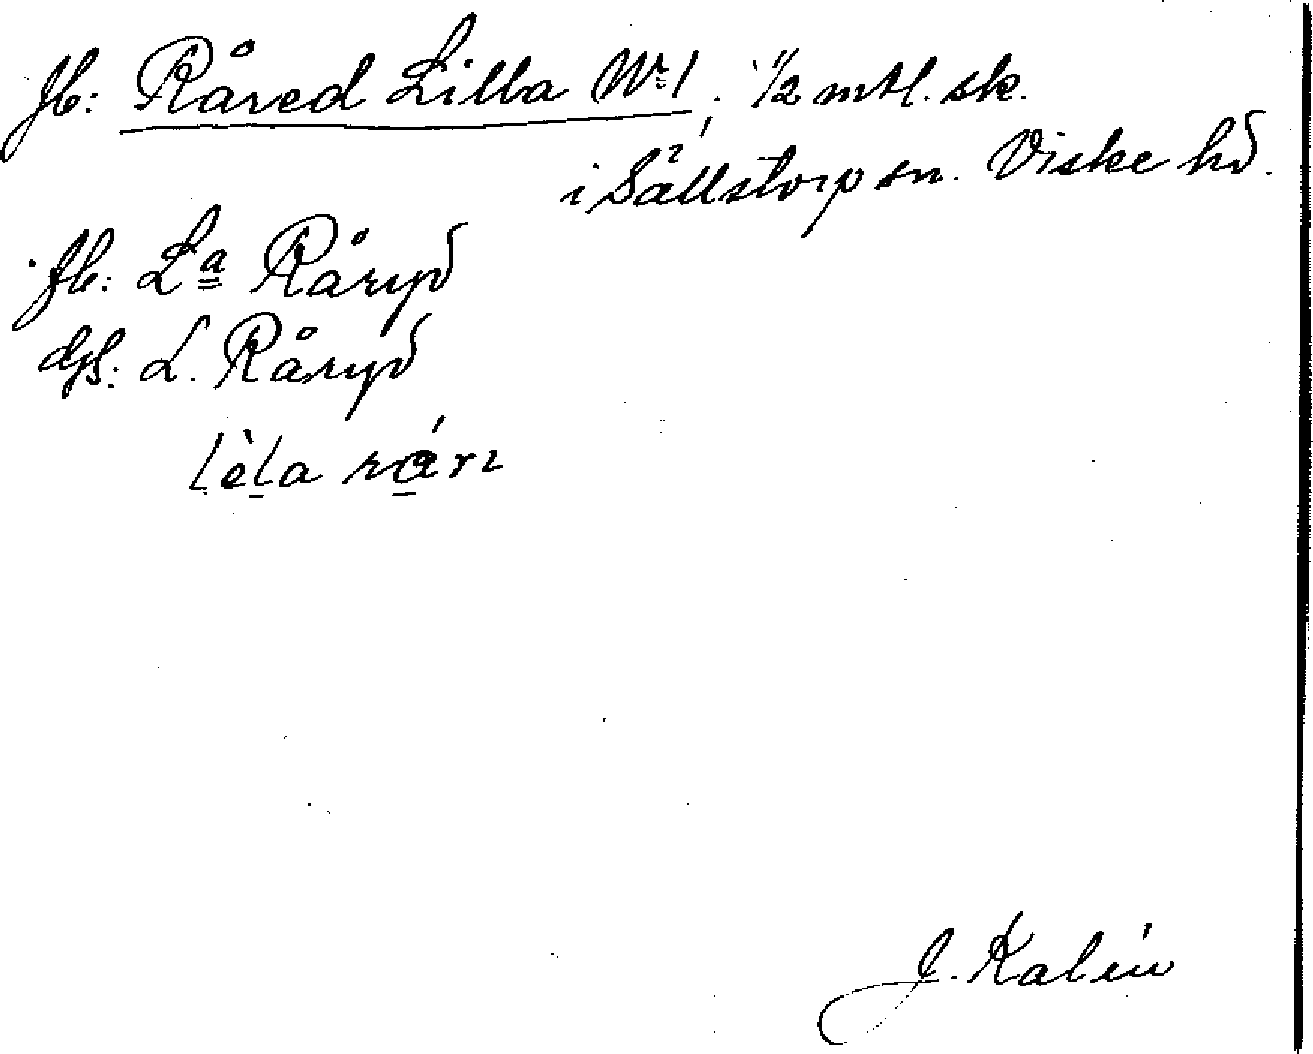 Jb: Råred Lilla Nr 1, 1/2 mtl. sk.
i Sällstorp sn. Viske hd.
fb: La Råryd
dps: L. Råryd
lèla rá̊rı
J. Kalén